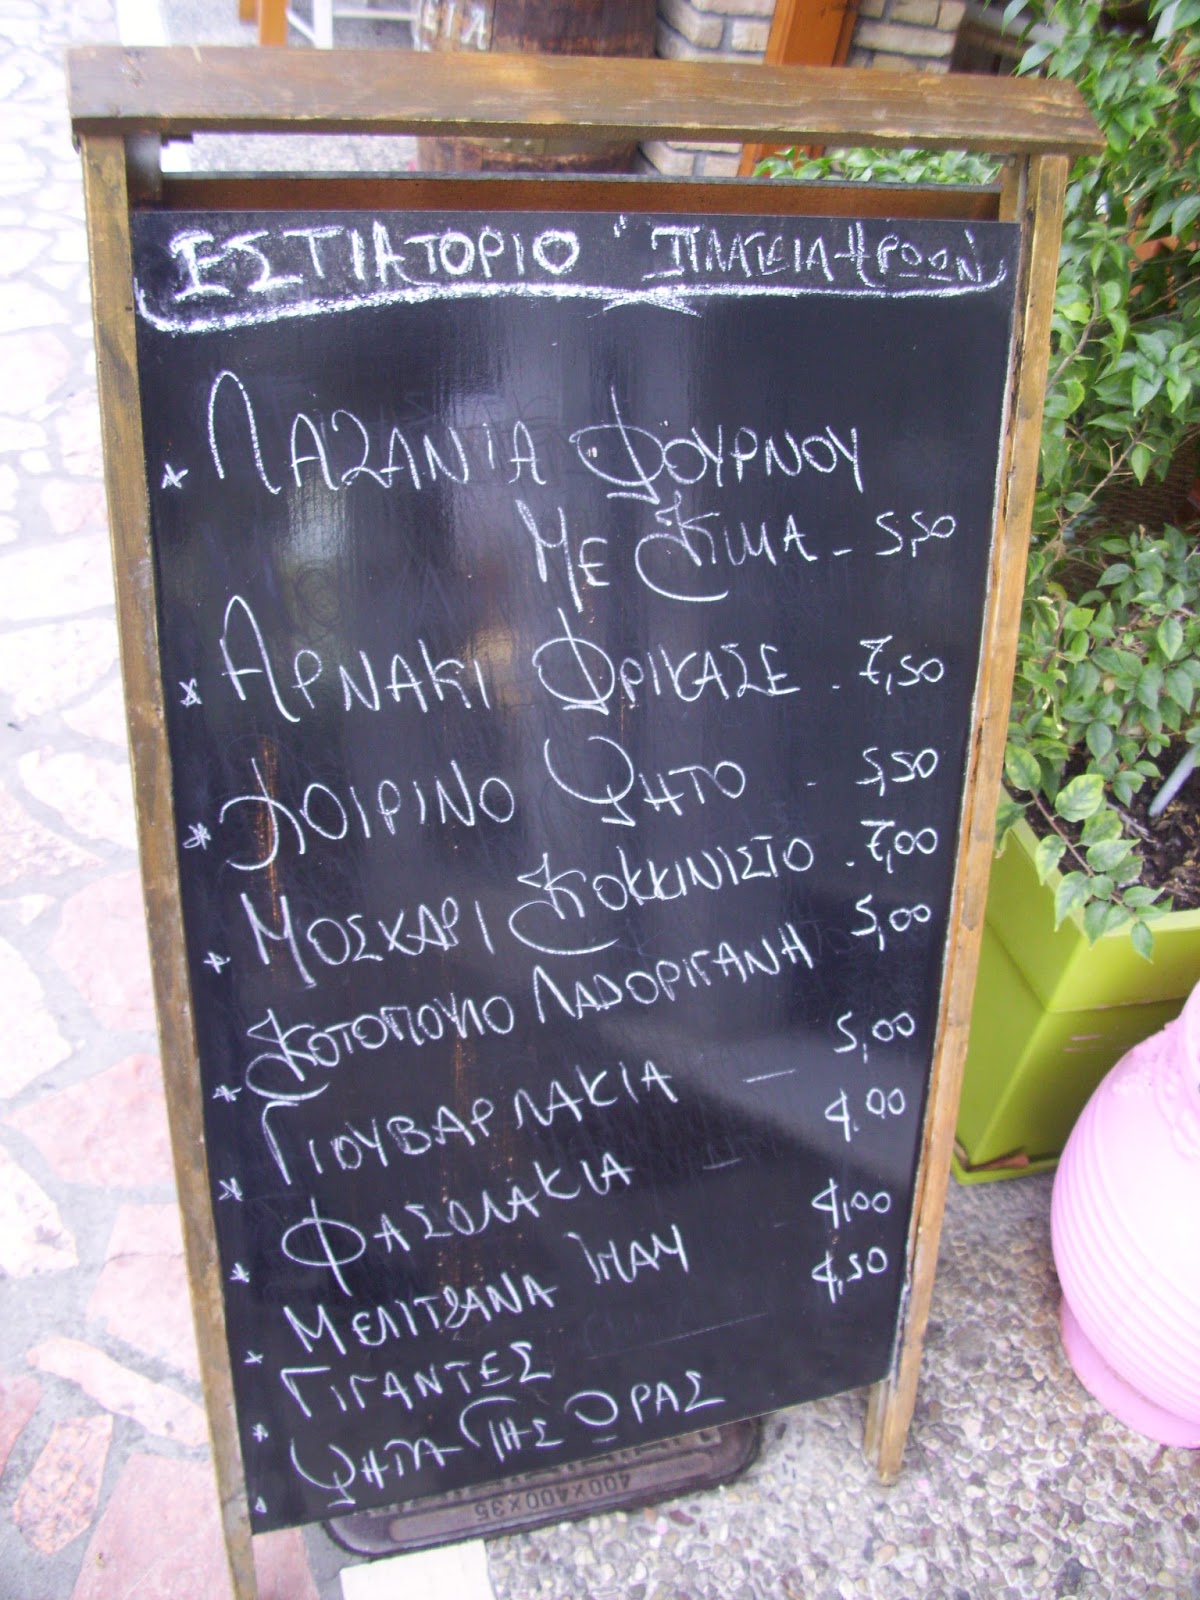 ΕΣΤΙΑΤΟΡΙΟ "ΠΛΑΤΕΙΑ ΗΡΩΩΝ
* ΛΑΖΑΝΙΑ ΦΟΥΡΝΟΥ
ΜΕ ΚΙΜΑ - 5,50
* ΑΡΝΑΚΙ ΦΡΙΚΑΣΕ - 7,50
* ΧΟΙΡΙΝΟ ΨΗΤΟ - 5,50
* ΜΟΣΧΑΡΙ ΚΟΚΚΙΝΙΣΤΟ - 7,00
* ΚΟΤΟΠΟΥΛΟ ΛΑΔΟΡΙΓΑΝΗ 5,00
* ΓΙΟΥΒΑΡΛΑΚΙΑ - 5,00
* ΦΑΣΟΛΑΚΙΑ - 4,00
* ΜΕΛΙΤΖΑΝΑ ΙΜΑΜ 4,00
* ΓΙΓΑΝΤΕΣ - 4,50
* ΨΗΤΑ ΤΗΣ ΩΡΑΣ
400×400×35